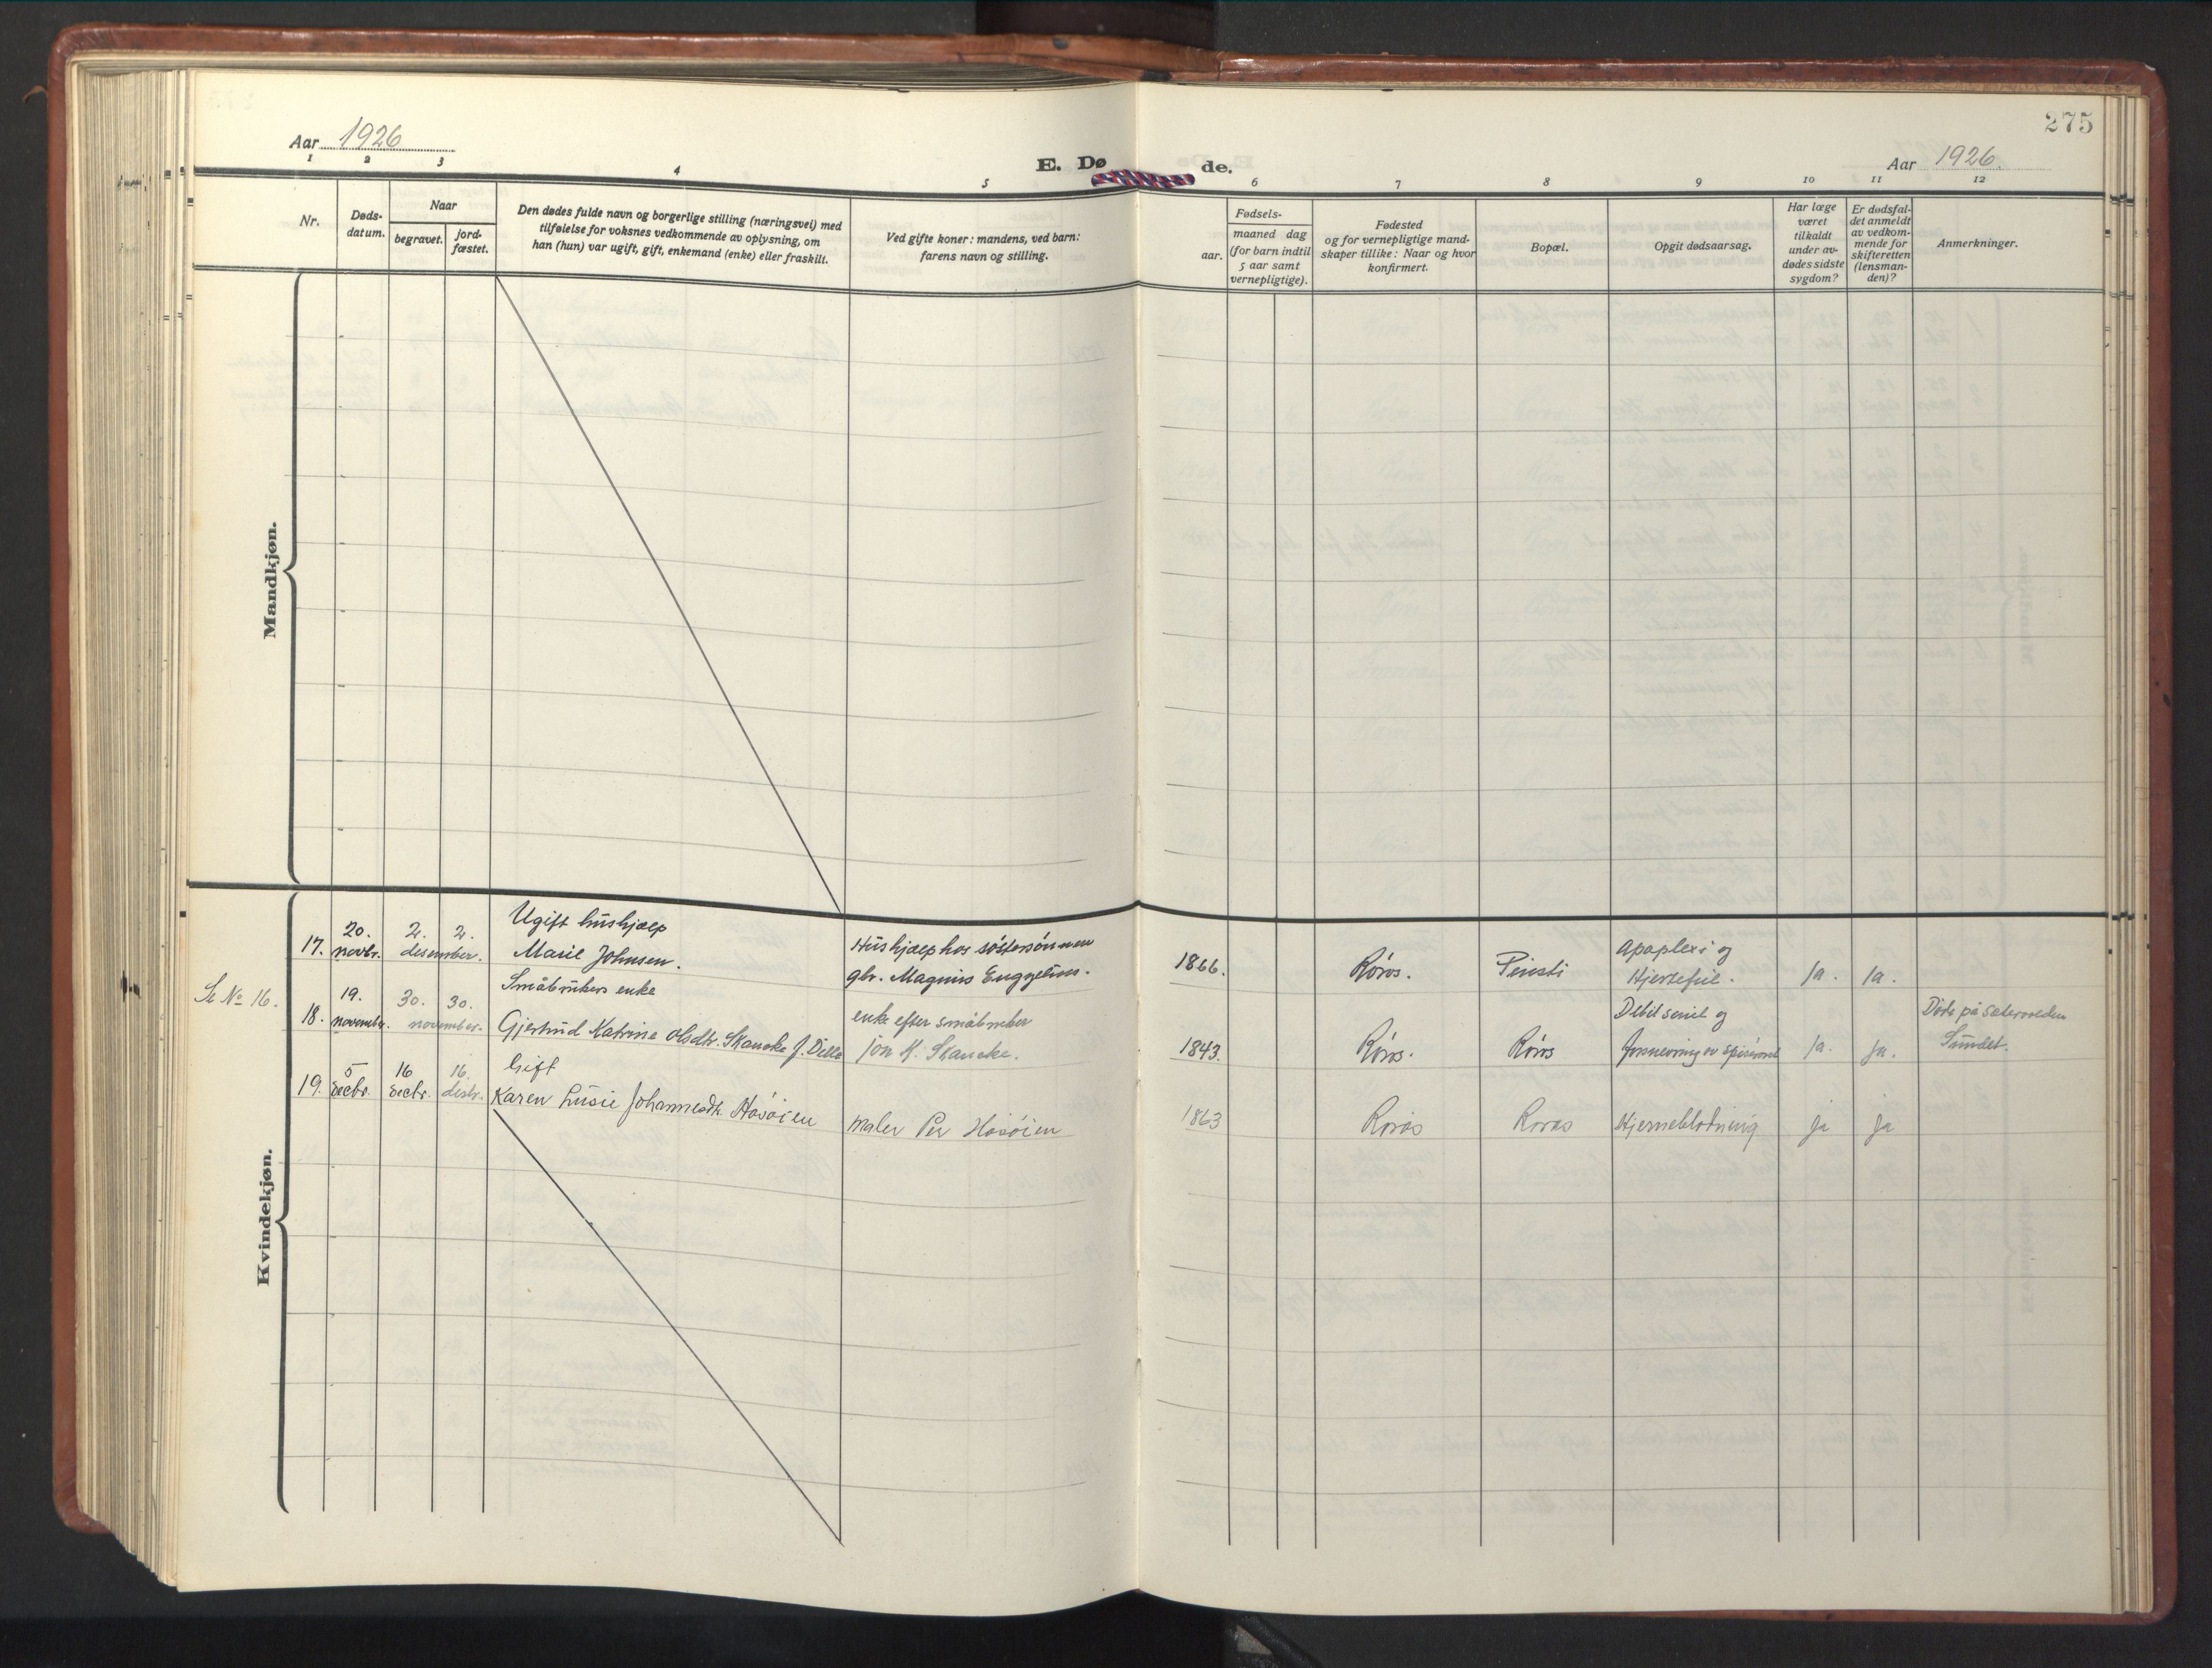 275
Aar 1926
E. Dø de.
Aar 1926.
1 2 3 4 5 6 7 8 9 10 11 12
Nr.
Døds-
datum.
Naar
begravet.
jord-
fæstet.
Den dødes fulde navn og borgerlige stilling (næringsvei) med
tilføielse for voksnes vedkommende av oplysning, om
han (hun) var ugift, gift, enkemand (enke) eller fraskilt.
Ved gifte koner: mandens, ved barn:
farens navn og stilling.
Fødsels-
aar.
maaned dag
(for barn indtil
5 aar samt
vernepligtige).
Fødested
og for vernepligtige mand-
skaper tillike: Naar og hvor
konfirmert.
Bopæl.
Opgit dødsaarsag.
Har læge
været
tilkaldt
under av-
dødes sidste
sygdom?
Er dødsfal-
det anmeldt
av vedkom-
mende for
skifteretten
(lensman-
den)?
Anmerkninger.
Mandkjøn.
Kvindekjøn.
17. 20. novbr. 2. 2. desember.
Ugift hushjælp
Marie Johnsen.
Hushjælp hos søstersønnen
gbr. Magnus Enggelius.
1866. Røros.
Apoplexi og
Hjertefeil. Ja. Ja.
Se No 16.
18. 19. november. 30. 30. november.
Småbrukers enke
Gjertrud Katrine Olsdtr. Skancke f. Dille
enke efter småbruker
Jon K. Skancke.
1843. Røros. Røros
Debil senil og
forsnevring av spiserøret Ja. Ja.
Døde på sætervolden
Sundet.
19. 5 decbr. 16 decbr. 16. desbr.
Gift
Karen Lusie Johannesdtr. Hosøien
Maler Per Hosøien
1863 Røros Røros Hjerneblødning ja ja